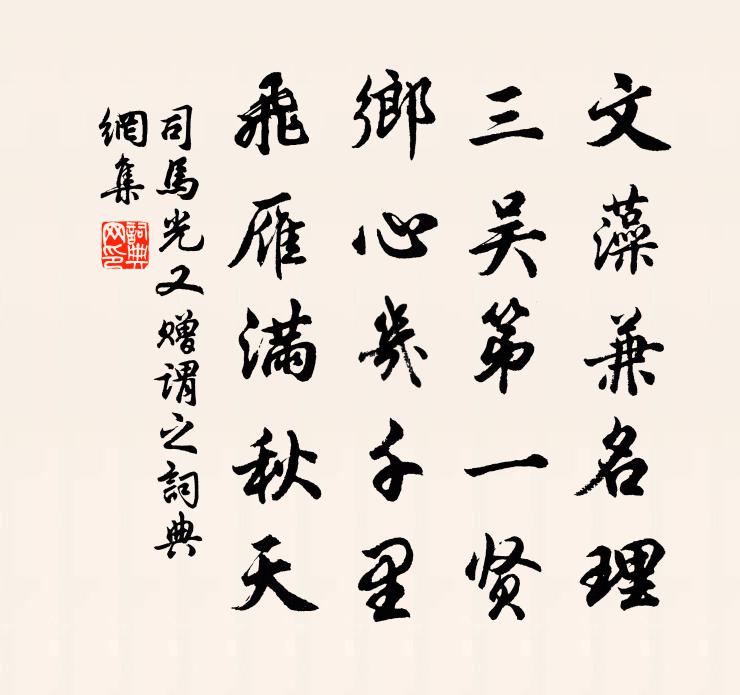 文藻兼名理
三吴第一贤
鄉心幾千里
飛雁满秋天
司馬光又赠谓之詞典
網集
詞典网印